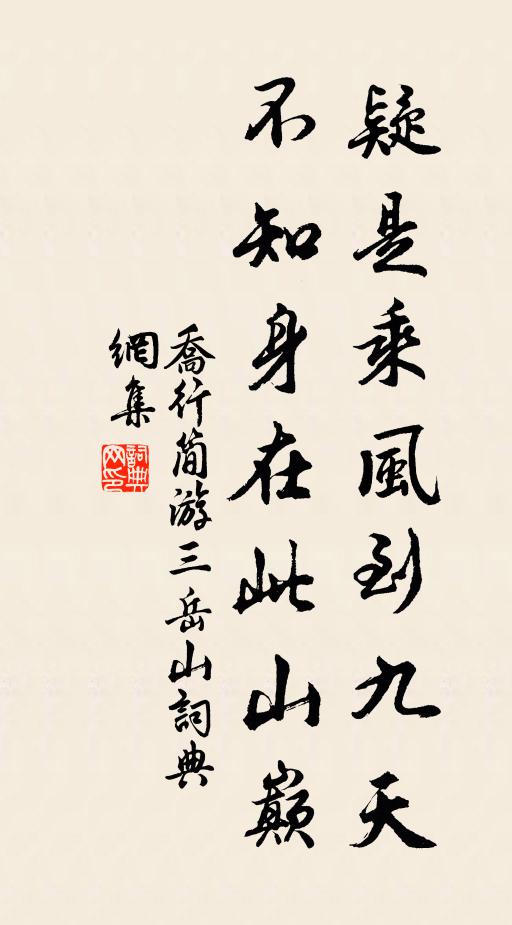 疑是乘風到九天
不知身在此山巔
喬行简游三岳山詞典
網集
詞典
网印